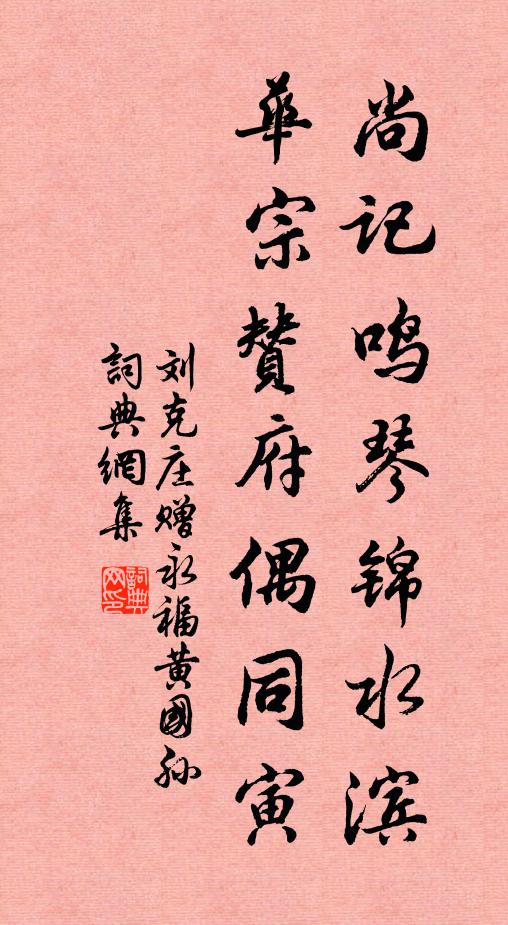 尚记鸣琴锦水滨
華宗赞府偶同寅
刘克庄赠永福黄國孙
詞典網集
詞典網印